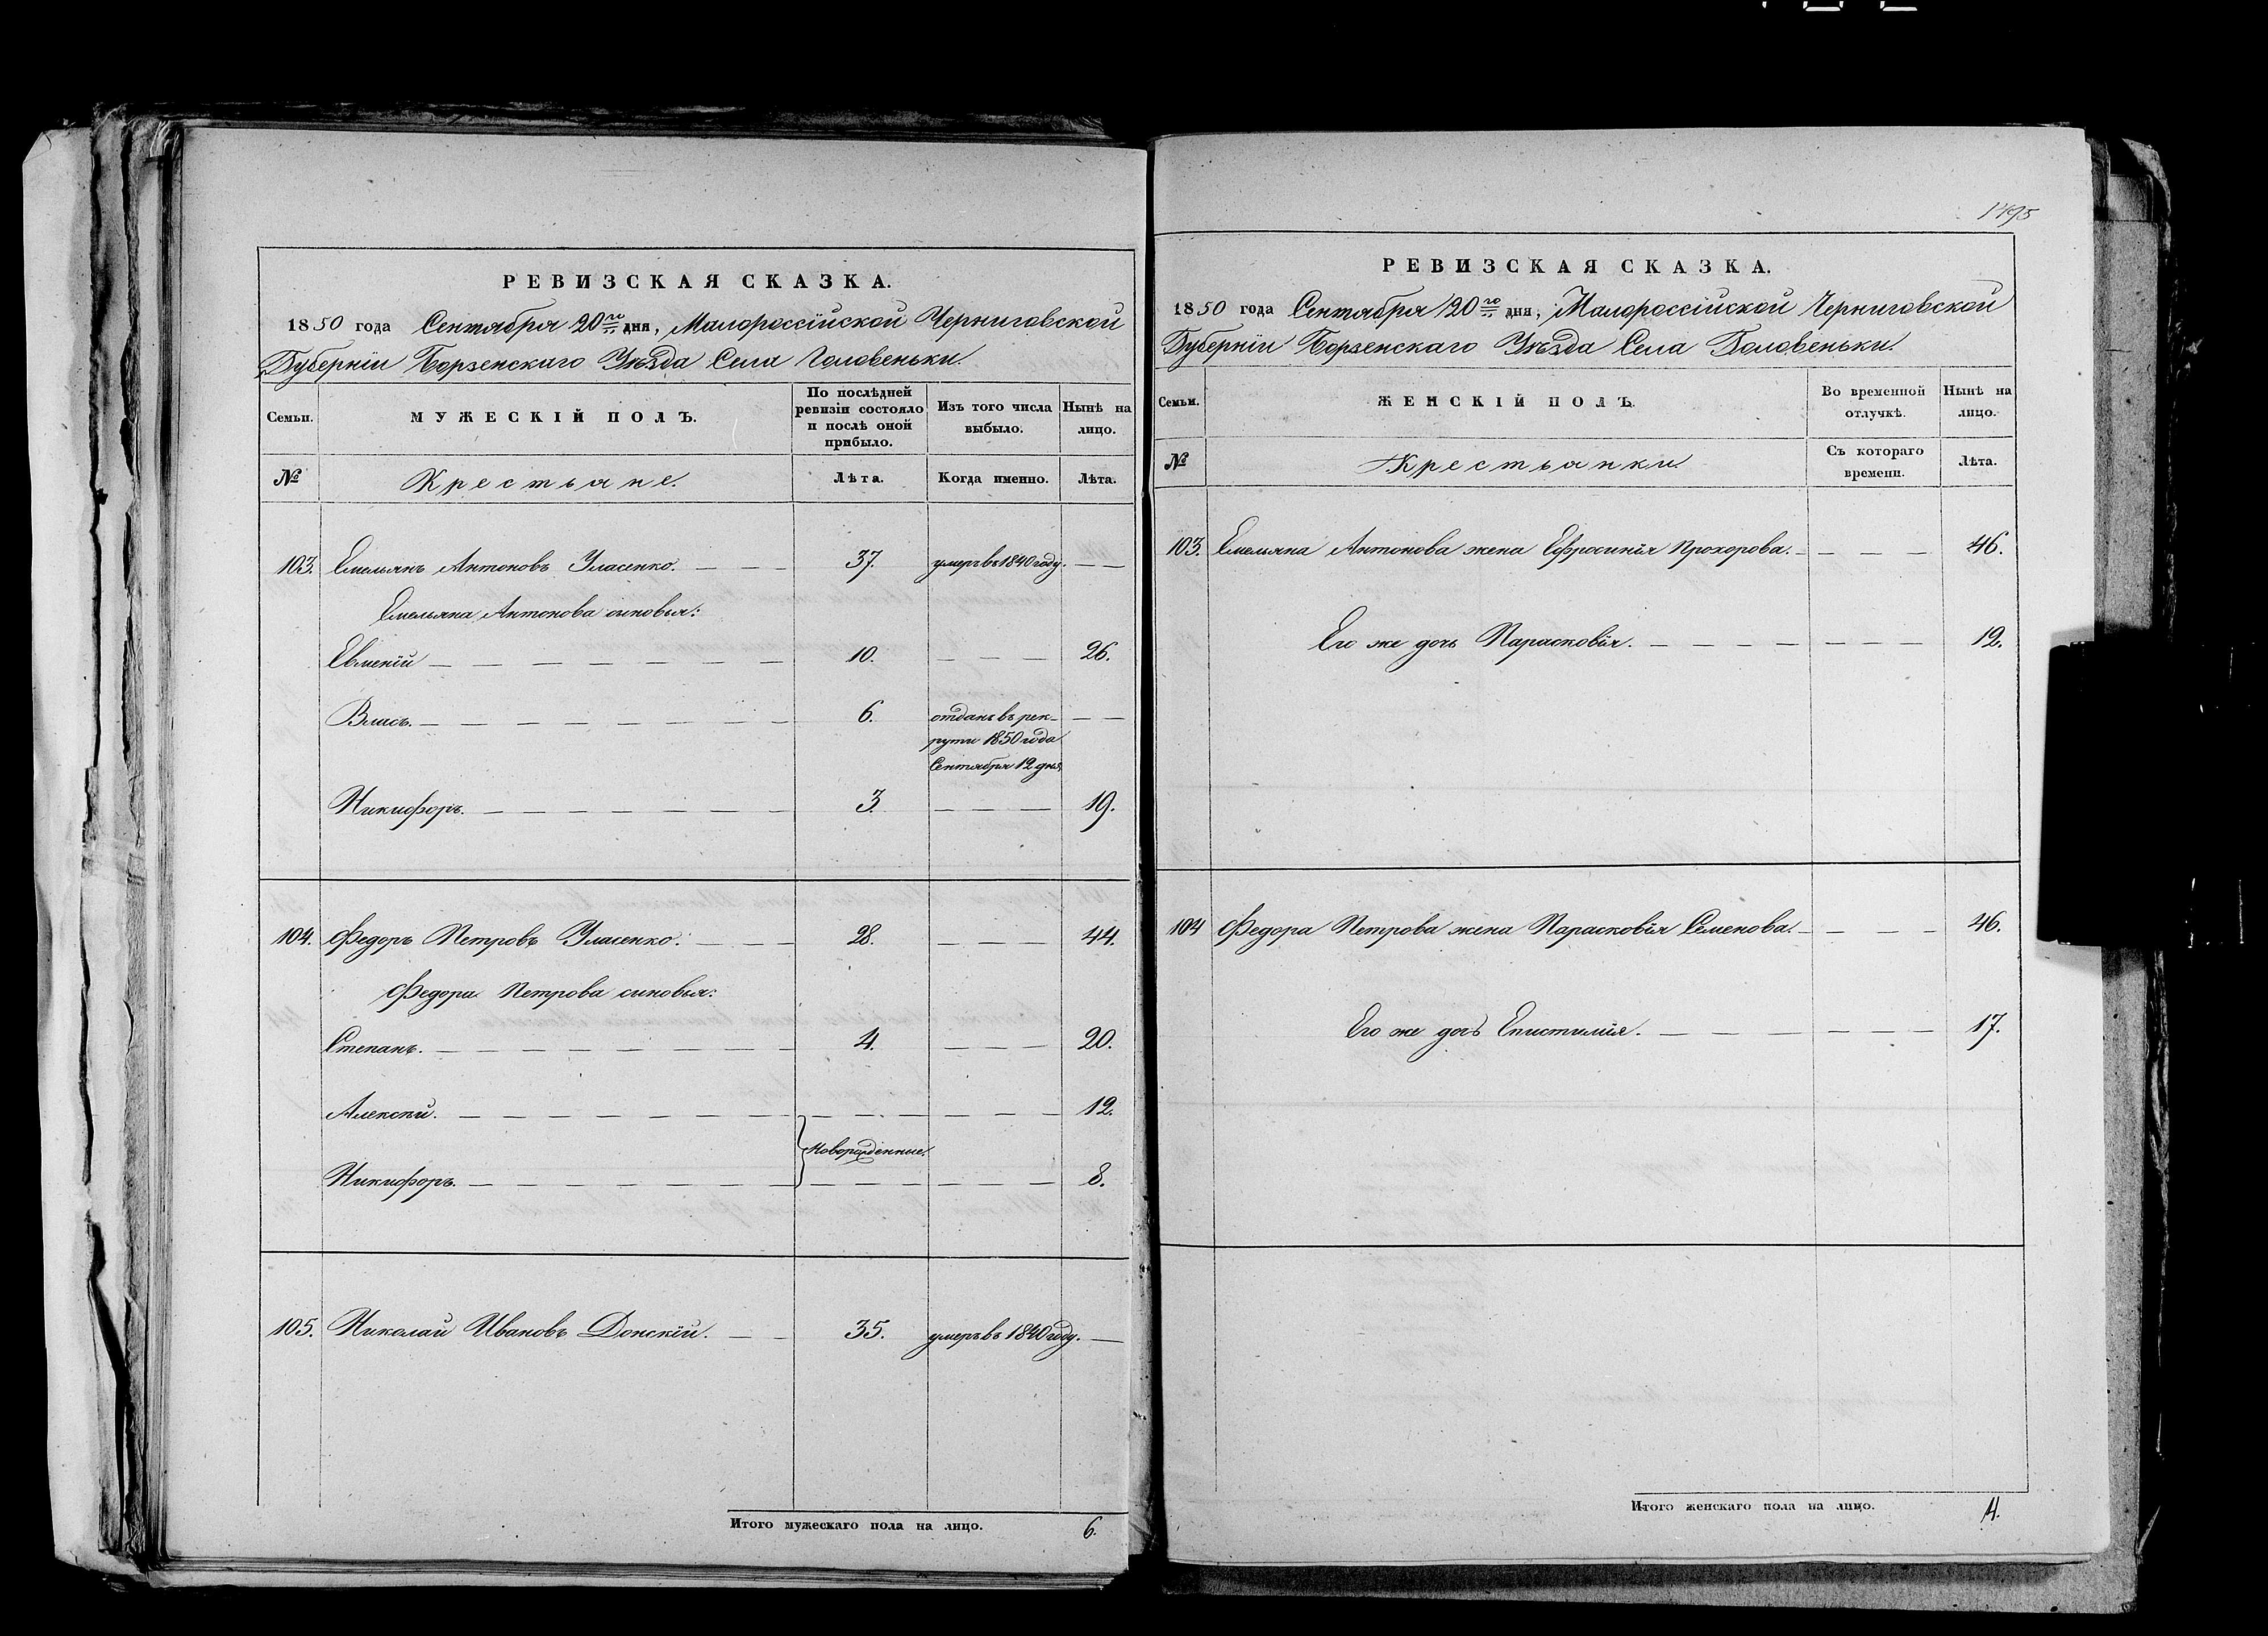 РЕВИЗСКАЯ СКАЗКА.
1850 года Сентября 20го дня, Малороссійской Черниговской
Губерніи Борзенскаго Уѣзда Села Головеньки.
Семьи. МУЖЕСКІЙ ПОЛЪ. По послѣдней ревизіи состояло и послѣ оной прибыло. Изъ того числа выбыло. Нынѣ на лицо.
№ Крестьяне. Лѣта. Когда именно. Лѣта.
103. Емельянъ Антоновъ Уласенко. — — 37. умеръ въ 1840 году. — —
Емельяна Антонова сыновья:
Евменій — — — — — — — 10. — — — 26.
Власъ. — — — — — — — 6. отданъ въ рек-
рути 1850 года
Сентября 12 дня,
— —
Никифоръ. — — — — — — 3. — — — 19.
104. Федоръ Петровъ Уласенко. — — 28. — — — 44.
Федора Петрова сыновья:
Степанъ. — — — — — — — 4. — — — 20.
Алексѣй. — — — — — — — — — — — — — 12.
Новорожденные.
Никифоръ. — — — — — — — — — — — — — 8.
105. Николай Ивановъ Донскій. — — 35. умеръ въ 1840 году. —
Итого мужескаго пола на лицо. 6.
1495
РЕВИЗСКАЯ СКАЗКА.
1850 года Сентября 20го дня, Малороссійской Черниговской
Губерніи Борзенскаго Уѣзда Села Головеньки.
Семьи. ЖЕНСКІЙ ПОЛЪ. Во временной отлучкѣ. Нынѣ на лицо.
№ Крестьянки. Съ котораго времени. Лѣта.
103. Емельяна Антонова жена Ефросинія Прохорова. — — — — 46.
Его же дочь Парасковія. — — — — — — — — 12.
104 Федора Петрова жена Парасковія Семенова. — — — — 46.
Его же дочь Епистимія. — — — — — — — — 17.
Итого женскаго пола на лицо. 4.